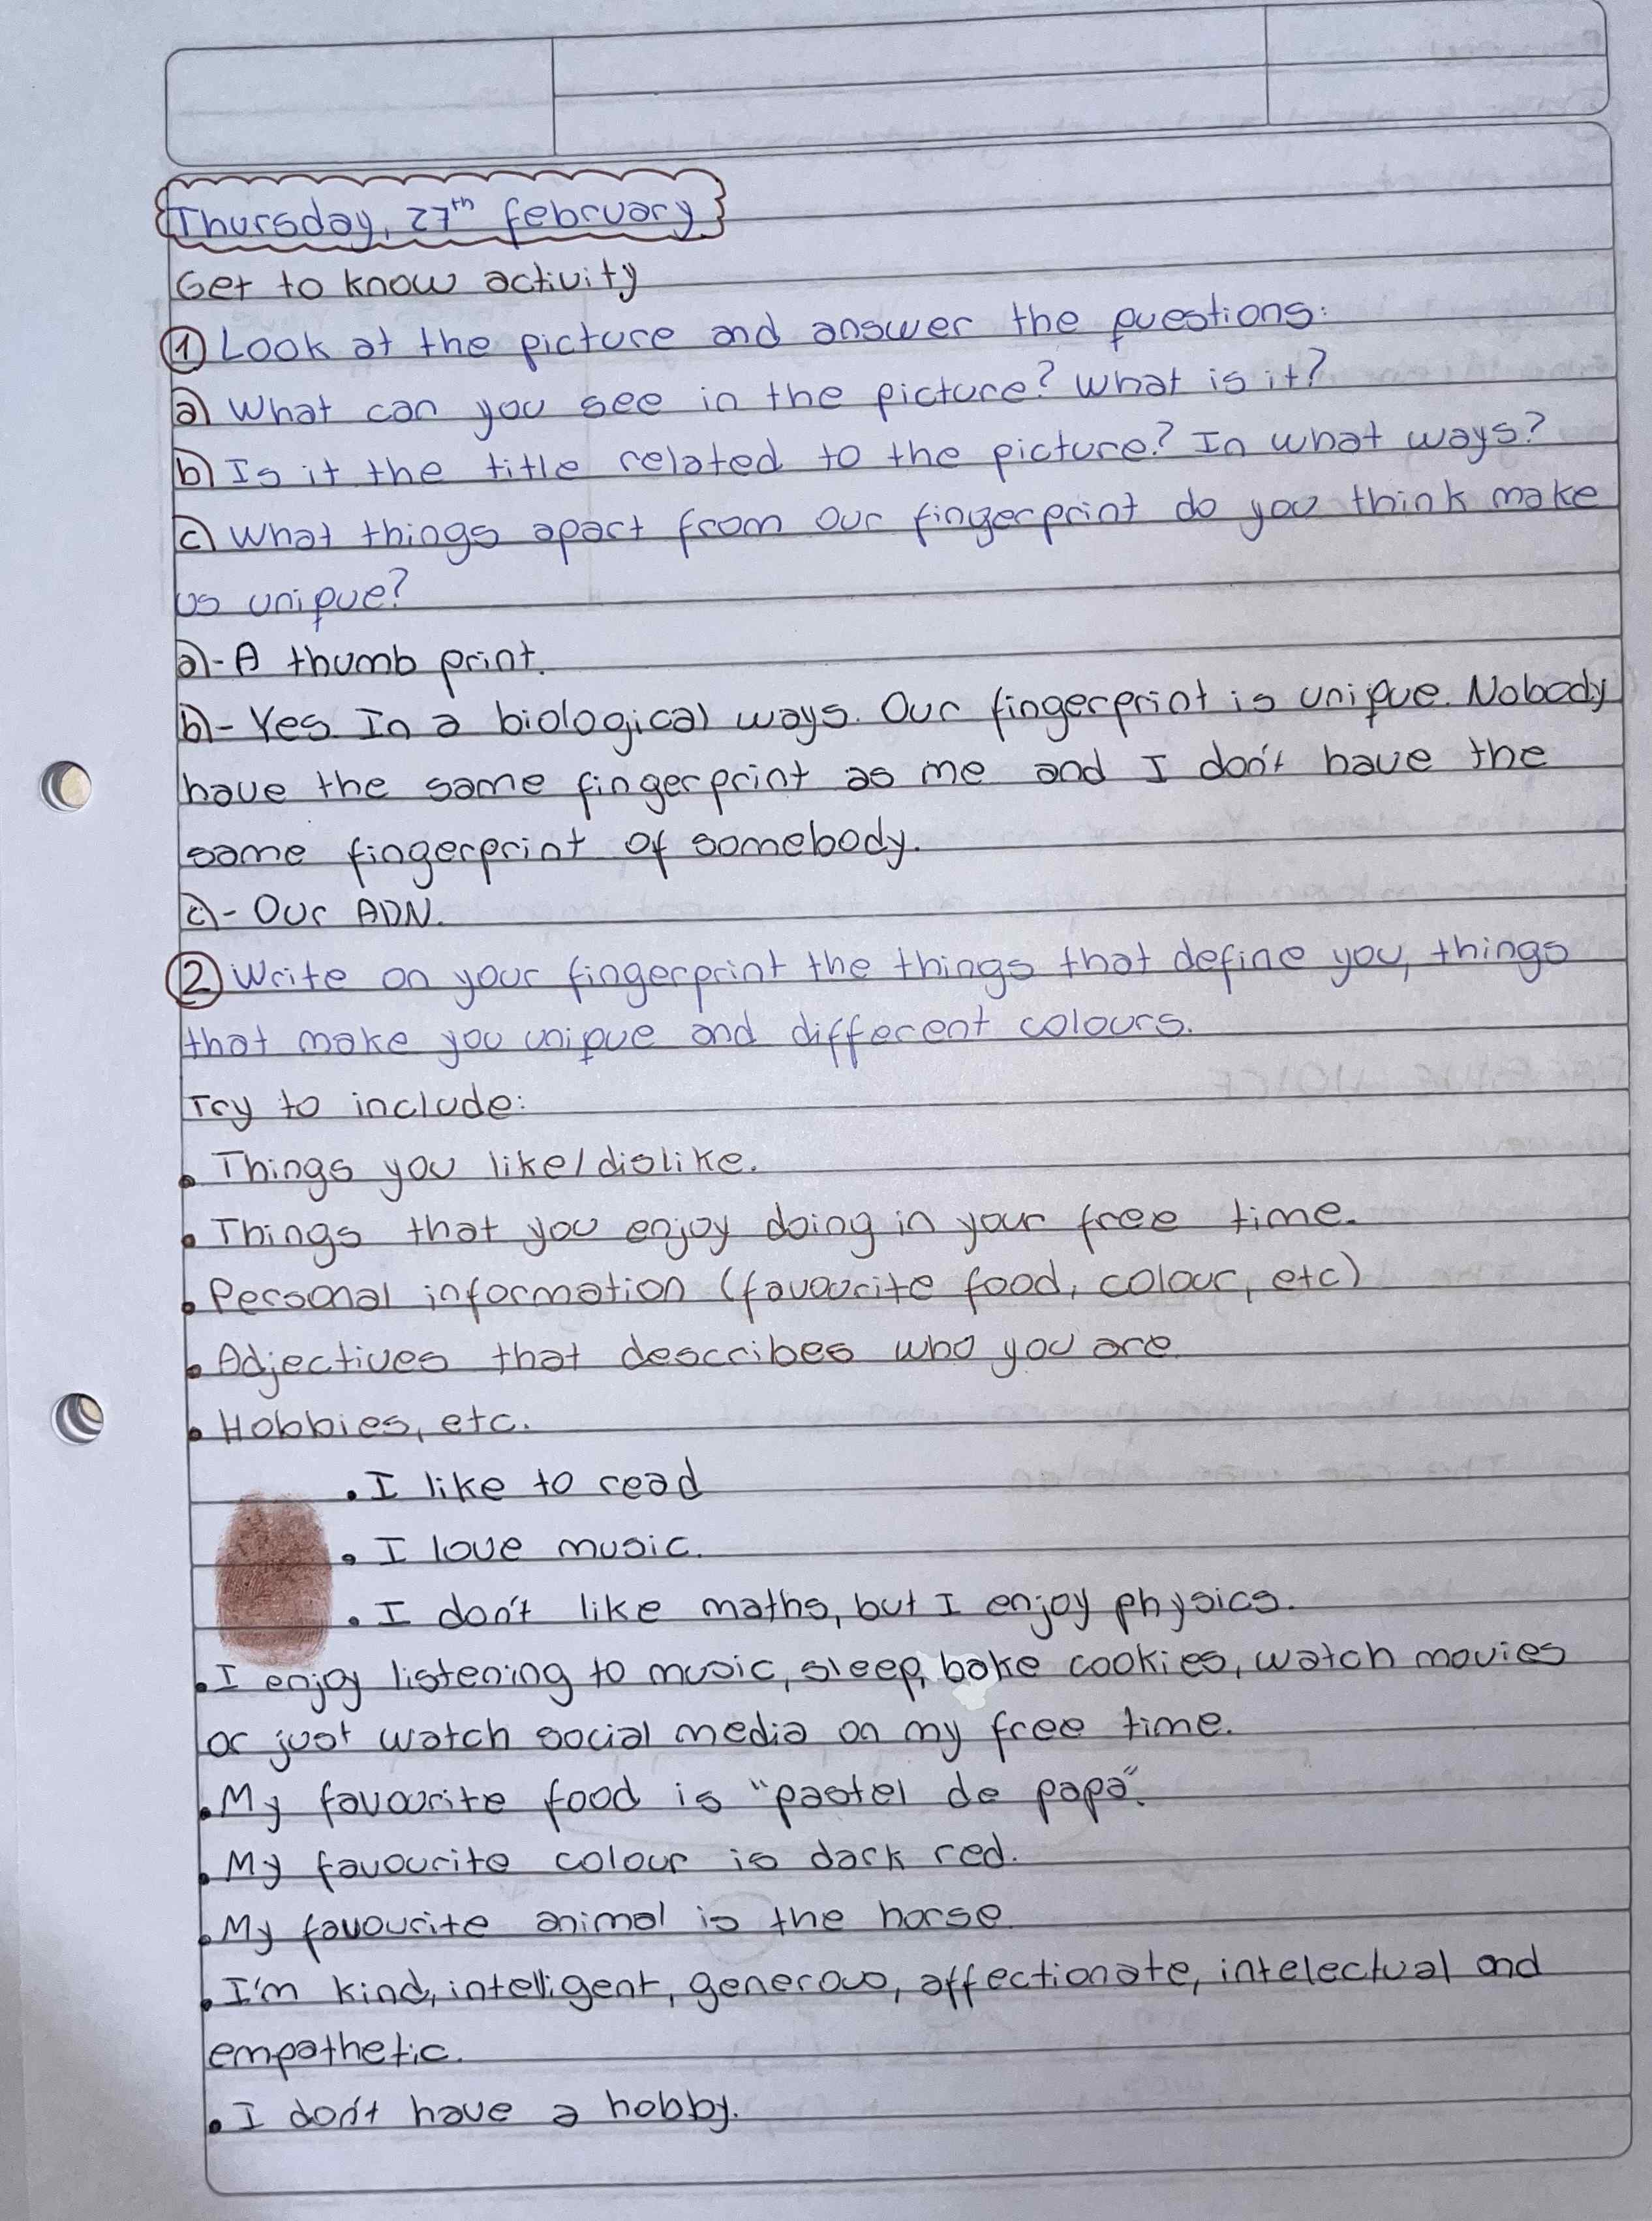 Thursday, 27th february
Get to know activity
1 Look at the picture and answer the questions:
a) What can you see in the picture? What is it?
b) Is it the title related to the picture? In what ways?
c) What things apart from our fingerprint do you think make
us unique?
a)- A thumb print.
b)- Yes. In a biological ways. Our fingerprint is unique. Nobody
have the same fingerprint as me and I don't have the
same fingerprint of somebody.
c)- Our ADN.
2 Write on your fingerprint the things that define you, things
that make you unique and different colours.
Try to include:
• Things you like/dislike.
• Things that you enjoy doing in your free time.
• Personal information (favourite food, colour, etc)
• Adjectives that describes who you are.
• Hobbies, etc.
• I like to read
• I love music.
• I don't like maths, but I enjoy physics.
• I enjoy listening to music, sleep, bake cookies, watch movies
or just watch social media on my free time.
• My favourite food is "pastel de papa".
• My favourite colour is dark red.
• My favourite animal is the horse.
• I'm kind, intelligent, generous, affectionate, intelectual and
empathetic.
• I don't have a hobby.